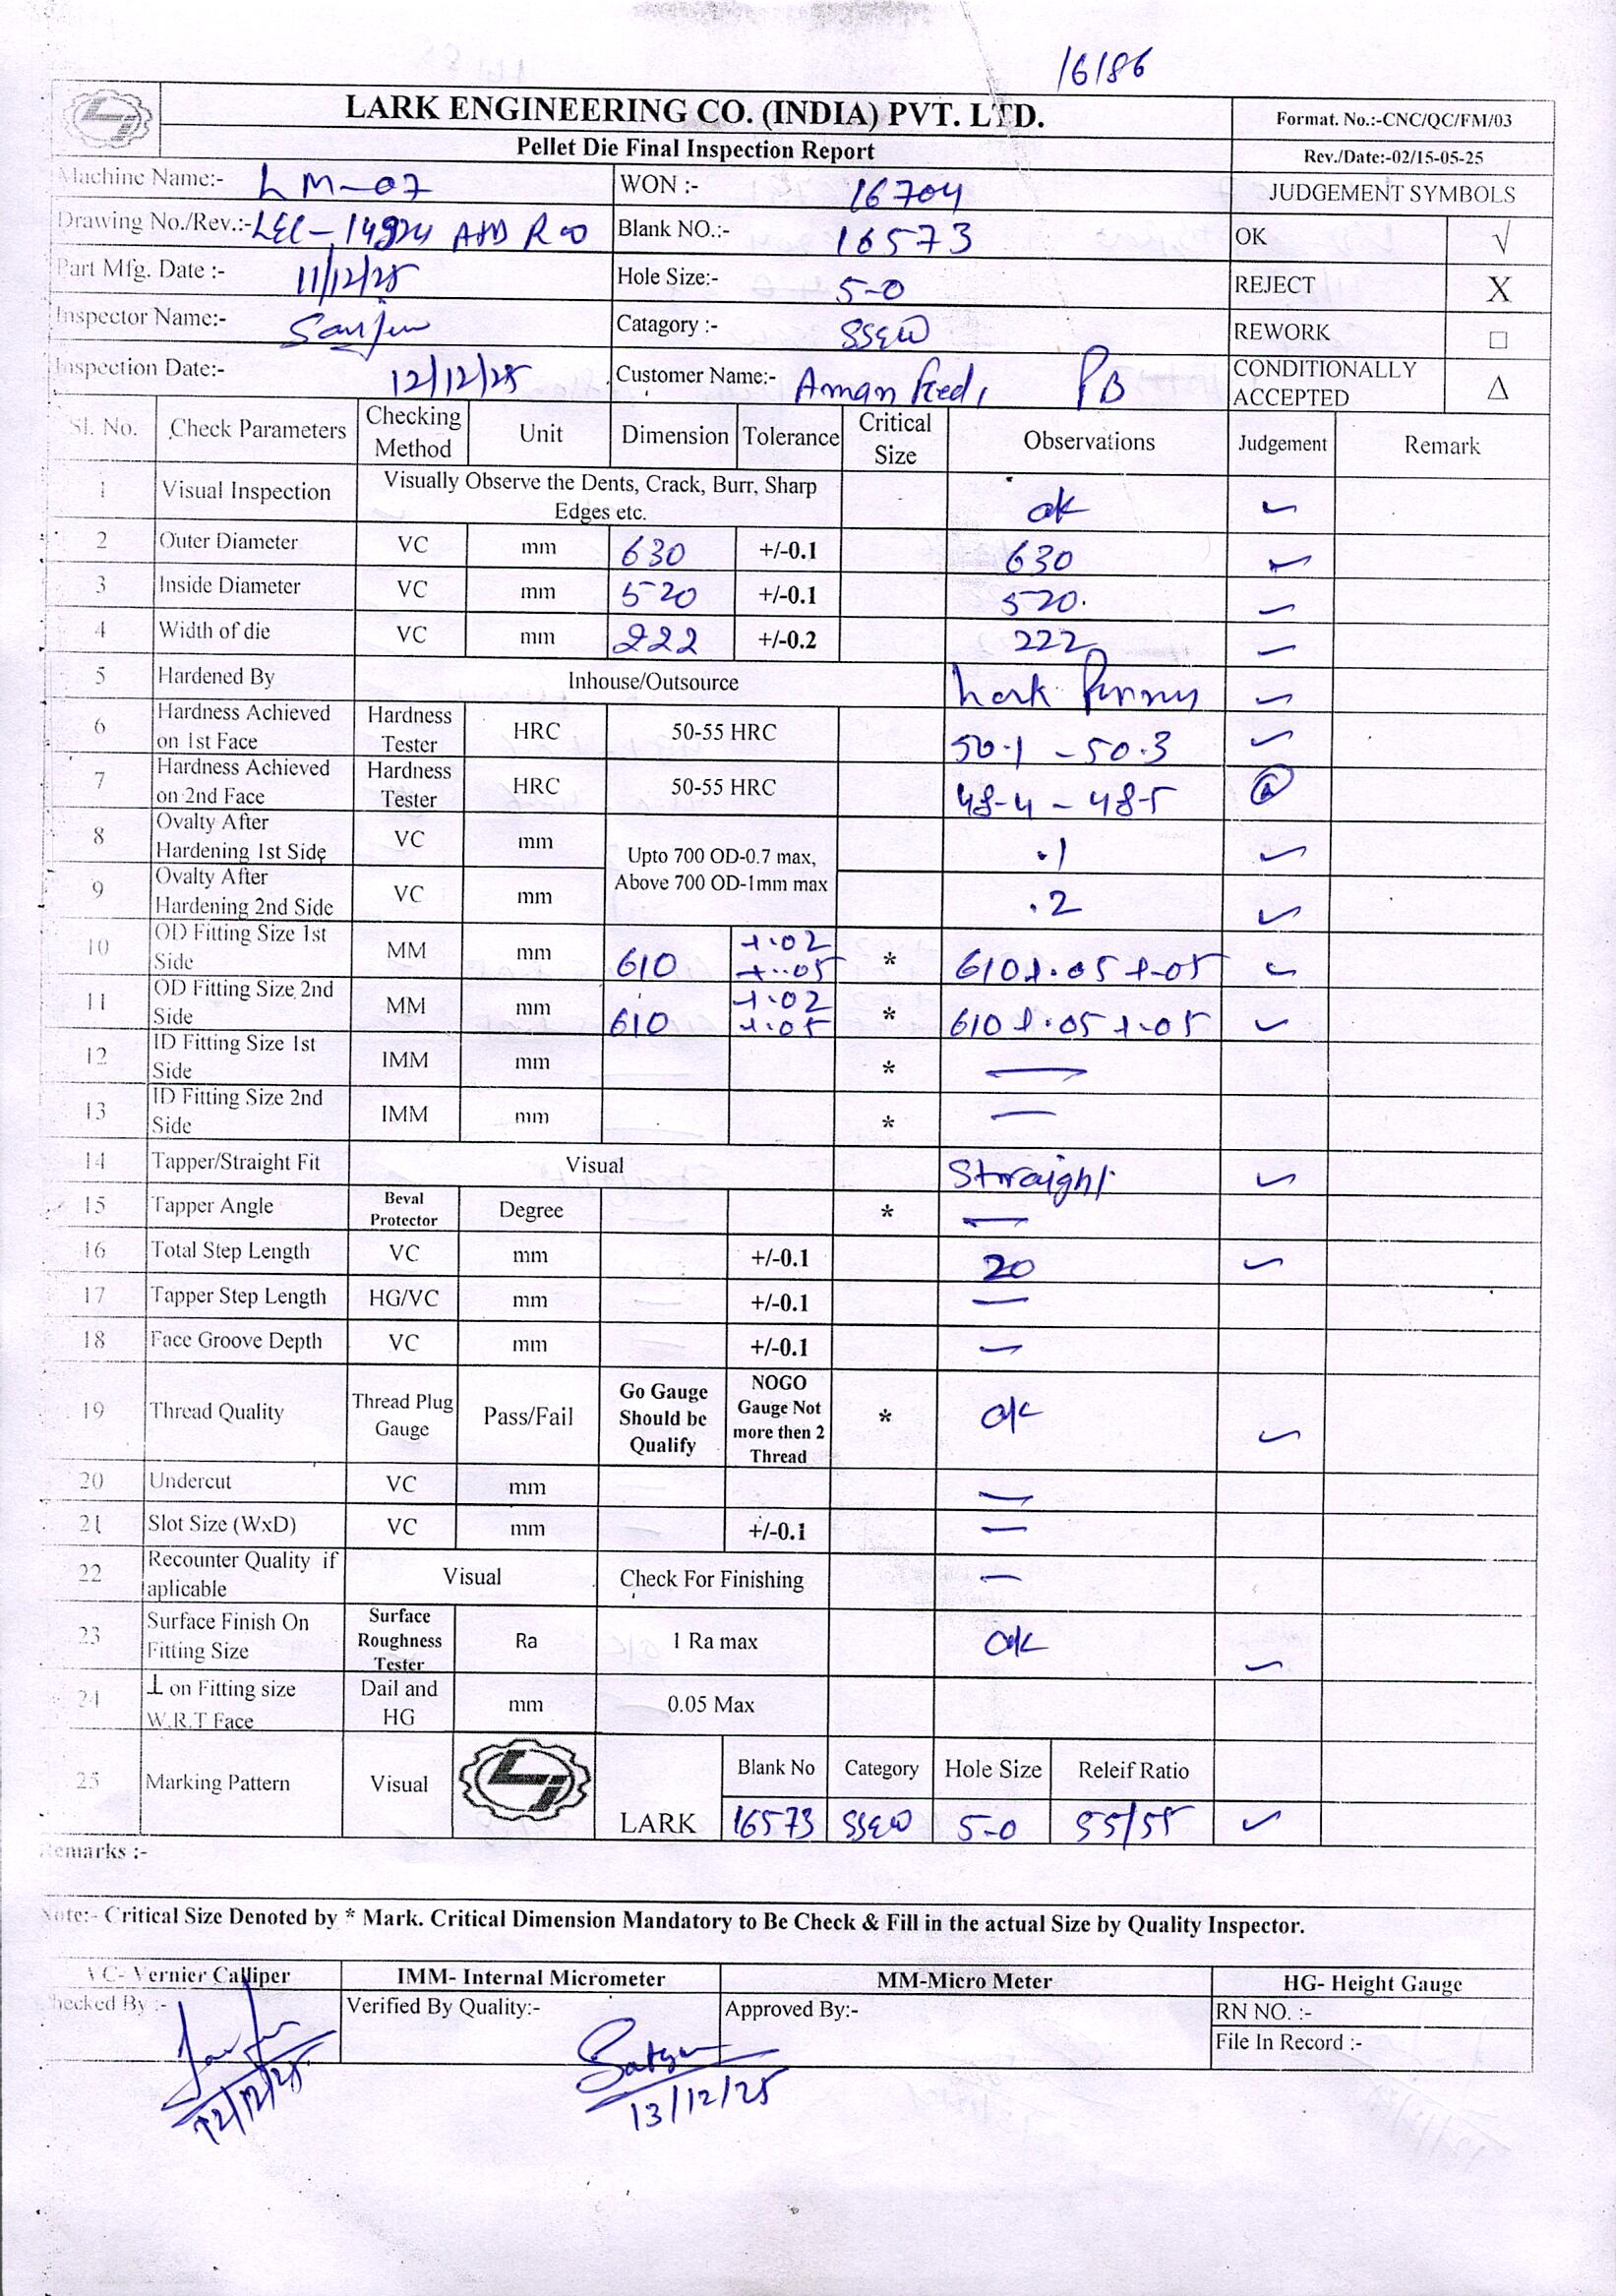 16186
LARK ENGINEERING CO. (INDIA) PVT. LTD.
Format. No.:-CNC/QC/FM/03
Pellet Die Final Inspection Report
Rev./Date:-02/15-05-25
Machine Name:- LM-07 WON :- 16704 JUDGEMENT SYMBOLS
Drawing No./Rev.:- Blank NO.:- 16573 OK √
Part Mfg. Date :- 11/12/25 Hole Size:- 5-0 REJECT X
Inspector Name:- Catagory :- SSEW REWORK □
Inspection Date:- 12/12/25 Customer Name:- Aman Feeds PB CONDITIONALLY ACCEPTED Δ
Sl. No. Check Parameters Checking Method Unit Dimension Tolerance Critical Size Observations Judgement Remark
1 Visual Inspection Visually Observe the Dents, Crack, Burr, Sharp Edges etc. ok ✓
2 Outer Diameter VC mm 630 +/-0.1 630 ✓
3 Inside Diameter VC mm 520 +/-0.1 520. ✓
4 Width of die VC mm 222 +/-0.2 222 ✓
5 Hardened By Inhouse/Outsource Lark ✓
6 Hardness Achieved on 1st Face Hardness Tester HRC 50-55 HRC 50.1 - 50.3 ✓
7 Hardness Achieved on 2nd Face Hardness Tester HRC 50-55 HRC 48-4 - 48-5
8 Ovalty After Hardening 1st Side VC mm Upto 700 OD-0.7 max, Above 700 OD-1mm max .1 ✓
9 Ovalty After Hardening 2nd Side VC mm .2 ✓
10 OD Fitting Size 1st Side MM mm 610 +.02 +.05 * 610 +.05 +.05 ✓
11 OD Fitting Size 2nd Side MM mm 610 +.02 +.05 * 610 +.05 +.05 ✓
12 ID Fitting Size 1st Side IMM mm * —
13 ID Fitting Size 2nd Side IMM mm * —
14 Tapper/Straight Fit Visual Straight ✓
15 Tapper Angle Beval Protector Degree * —
16 Total Step Length VC mm +/-0.1 20 ✓
17 Tapper Step Length HG/VC mm +/-0.1 —
18 Face Groove Depth VC mm +/-0.1 —
19 Thread Quality Thread Plug Gauge Pass/Fail Go Gauge Should be Qualify NOGO Gauge Not more then 2 Thread * ok ✓
20 Undercut VC mm —
21 Slot Size (WxD) VC mm +/-0.1 —
22 Recounter Quality if aplicable Visual Check For Finishing —
23 Surface Finish On Fitting Size Surface Roughness Tester Ra 1 Ra max ok ✓
24 ⊥ on Fitting size W.R.T Face Dail and HG mm 0.05 Max
25 Marking Pattern Visual LARK Blank No Category Hole Size Releif Ratio
16573 SSEW 5-0 55/55 ✓
Remarks :-
Note:- Critical Size Denoted by * Mark. Critical Dimension Mandatory to Be Check & Fill in the actual Size by Quality Inspector.
VC- Vernier Calliper IMM- Internal Micrometer MM-Micro Meter HG- Height Gauge
Checked By :- Verified By Quality:- Approved By:- RN NO. :-
File In Record :-
12/12/25 13/12/25